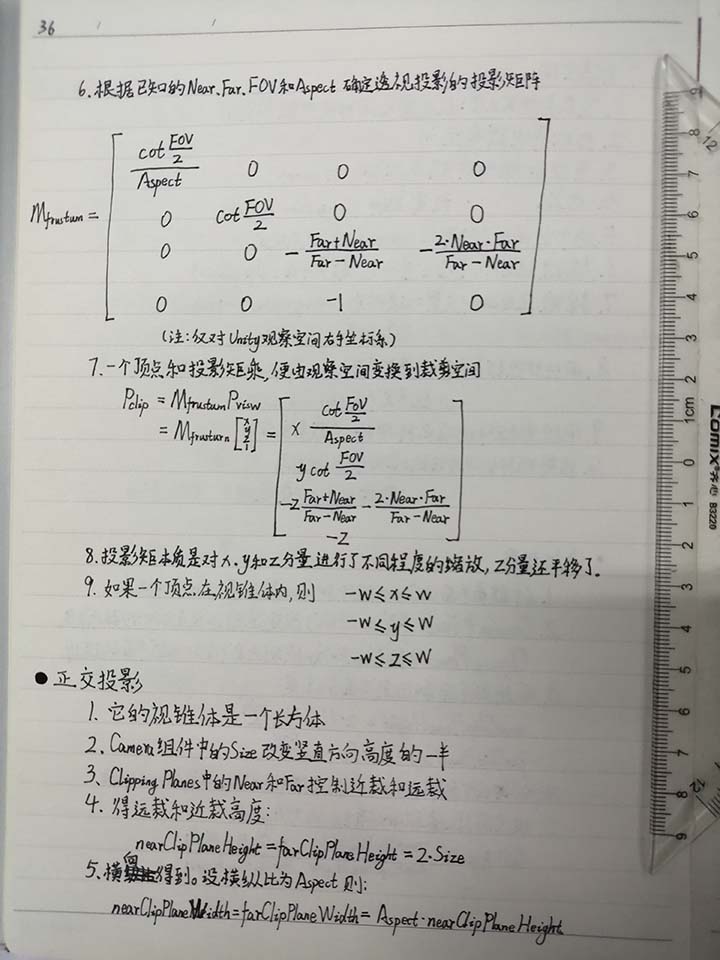 36
6.根据已知的Near、Far、FOV和Aspect 确定透视投影的投影矩阵
M_frustum = [ cot(FOV/2)/Aspect 0 0 0
0 cot FOV/2 0 0
0 0 -(Far+Near)/(Far-Near) -(2·Near·Far)/(Far-Near)
0 0 -1 0 ]
(注:仅对Unity观察空间右手坐标系)
7.一个顶点和投影矩乘,便由观察空间变换到裁剪空间
P_clip = M_frustum P_view
= M_frustum [x y z 1] = [ x cot(FOV/2)/Aspect
y cot FOV/2
-z (Far+Near)/(Far-Near) - (2·Near·Far)/(Far-Near)
-z ]
8.投影矩本质是对x、y和z分量进行了不同程度的缩放,z分量还平移了。
9.如果一个顶点在视锥体内,则 -w≤x≤w
-w≤y≤w
-w≤z≤w
●正交投影
1、它的视锥体是一个长方体
2、Camera组件中的Size改变竖直方向高度的一半
3、Clipping Planes中的Near和Far控制近裁和远裁
4、得远裁和近裁高度:
nearClipPlaneHeight=farClipPlaneHeight=2·Size
5、横向得到。设横纵比为Aspect则:
nearClipPlaneWidth=farClipPlaneWidth=Aspect·nearClipPlaneHeight
9
8
7
6
5
4
3
2
1cm
0
1
2
3
4
5
6
7
8
9
12
12
comix 齐心 B3220